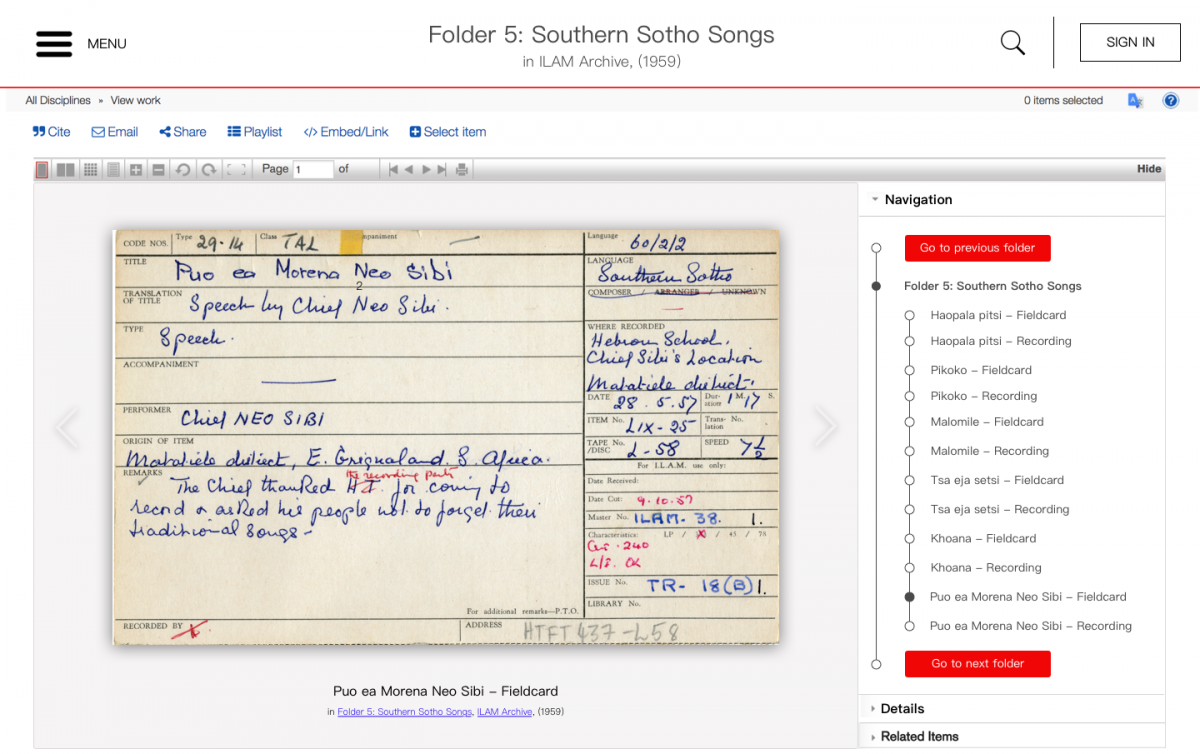 MENU
Folder 5: Southern Sotho Songs
in ILAM Archive, (1959)
SIGN IN
All Disciplines » View work
0 items selected
Cite
Email
Share
Playlist
</> Embed/Link
Select item
Page 1 of
Hide
CODE NOS. Type 29·14 Class TAL
TITLE Puo ea Morena Neo Sibi
2
TRANSLATION OF TITLE Speech by Chief Neo Sibi.
TYPE Speech.
ACCOMPANIMENT
PERFORMER Chief NEO SIBI
ORIGIN OF ITEM
Matatiele district, E. Griqualand. S. Africa.
REMARKS
the recording party
The Chief thanked H.T. for coming to
record & asked his people not to forget their
traditional songs -
For additional remarks—P.T.O.
RECORDED BY
ADDRESS HTFT 437 -L58
Language 60/2/2
LANGUAGE
Southern Sotho
COMPOSER / ARRANGER / UNKNOWN
WHERE RECORDED
Hebron School.
Chief Sibi's Location
Matatiele district.
DATE 28.5.57 Duration 1 M. 17 S.
ITEM No. LIX-25 Translation No.
TAPE No. /DISC L-58 SPEED 7½
For I.L.A.M. use only:
Date Received:
Date Cut: 9.10.57
Master No. ILAM. 38. 1.
Characteristics: LP / X / 45 / 78
240
OK
ISSUE No. TR- 18(B)1.
LIBRARY No.
Puo ea Morena Neo Sibi – Fieldcard
in Folder 5: Southern Sotho Songs, ILAM Archive, (1959)
Navigation
Go to previous folder
Folder 5: Southern Sotho Songs
Haopala pitsi – Fieldcard
Haopala pitsi – Recording
Pikoko – Fieldcard
Pikoko – Recording
Malomile – Fieldcard
Malomile – Recording
Tsa eja setsi – Fieldcard
Tsa eja setsi – Recording
Khoana – Fieldcard
Khoana – Recording
Puo ea Morena Neo Sibi – Fieldcard
Puo ea Morena Neo Sibi – Recording
Go to next folder
Details
Related Items